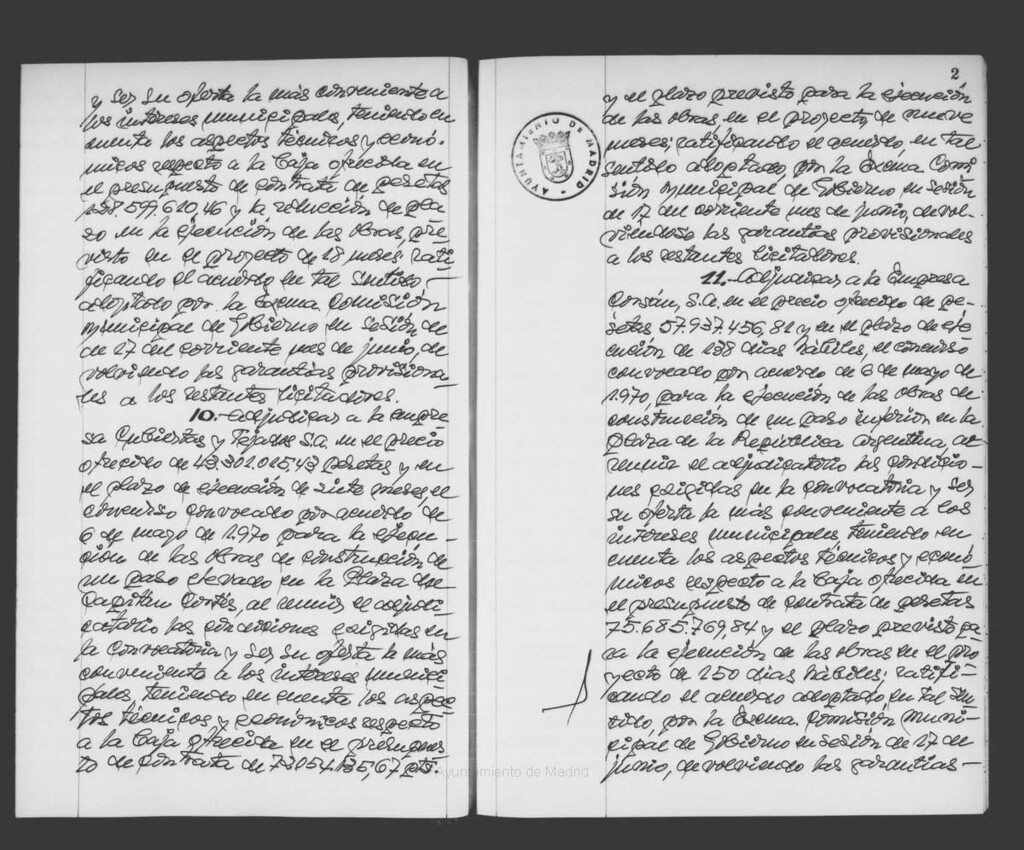 y ser su oferta la más conveniente a
los intereses municipales, teniendo en
cuenta los aspectos técnicos y econó-
micos respecto a la baja ofrecida en
el presupuesto de contrata de pesetas
138.599.610,46 y la reducción de pla-
zo en la ejecución de las obras, pre-
visto en el proyecto de 18 meses, rati-
ficando el acuerdo en tal sentido,
adoptado por la Excma Comisión
Municipal de Gobierno en sesión de
de 17 del corriente mes de junio, de-
volviendo las garantías provisiona-
les a los restantes licitadores.
10.- Adjudicar a la Empre-
sa Cubiertas y Tejados S.A. en el precio
ofrecido de 43.301.015,43 pesetas y en
el plazo de ejecución de siete meses el
concurso convocado por acuerdo de
6 de mayo de 1.970 para la ejecu-
ción de las obras de construcción de
un paso elevado en la Plaza del
Capitán Cortés, al reunir el adjudi-
catario las condiciones exigidas en
la convocatoria y ser su oferta la más
conveniente a los intereses munici-
pales, teniendo en cuenta los aspec-
tos técnicos y económicos respecto
a la baja ofrecida en el presupues-
to de contrata de 73.054.135,67 pts.
2
AYUNTAMIENTO DE MADRID
y el plazo previsto para la ejecución
de las obras, en el proyecto, de nueve
meses; ratificando el acuerdo, en tal
sentido adoptado, por la Excma Comi-
sión Municipal de Gobierno en sesión
de 17 del corriente mes de junio, devol-
viéndose las garantías provisionales
a los restantes licitadores.
11.- Adjudicar a la Empresa
Corsán, S.A. en el precio ofrecido de pe-
setas 57.937.456,81 y en el plazo de eje-
cución de 138 días hábiles, el concurso
convocado por acuerdo de 6 de mayo de
1.970, para la ejecución de las obras de
construcción de un paso inferior en la
plaza de la República Argentina, al
reunir el adjudicatario las condicio-
nes exigidas en la convocatoria y ser
su oferta la más conveniente a los
intereses municipales teniendo en
cuenta los aspectos técnicos y econó-
micos respecto a la baja ofrecida en
el presupuesto de contrata de pesetas
75.685.769,84 y el plazo previsto pa-
ra la ejecución de las obras en el pro-
yecto de 250 días hábiles; ratifi-
cando el acuerdo adoptado, en tal sen-
tido, por la Excma. Comisión Muni-
cipal de Gobierno en sesión de 17 de
junio, devolviendo las garantías-
Ayuntamiento de Madrid